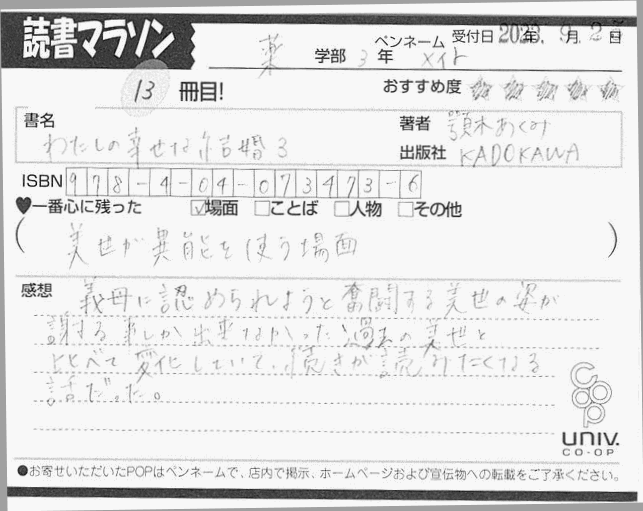 読書マラソン
薬 学部 3年 ペンネーム メイト 受付日 2023年 9月 2 日
13 冊目!
おすすめ度
書名 わたしの幸せな結婚3
著者 顎木あくみ
出版社 KADOKAWA
ISBN 978-4-04-073473-6
♥一番心に残った ☑場面 □ことば □人物 □その他
(美世が異能を使う場面)
感想 義母に認められようと奮闘する美世の姿が
謝る事しか出来なかった過去の美世と
比べて変化していて、続きが読みたくなる
話だった。
co-op
UNIV.
CO-OP
●お寄せいただいたPOPはペンネームで、店内で掲示、ホームページおよび宣伝物への転載をご了承ください。